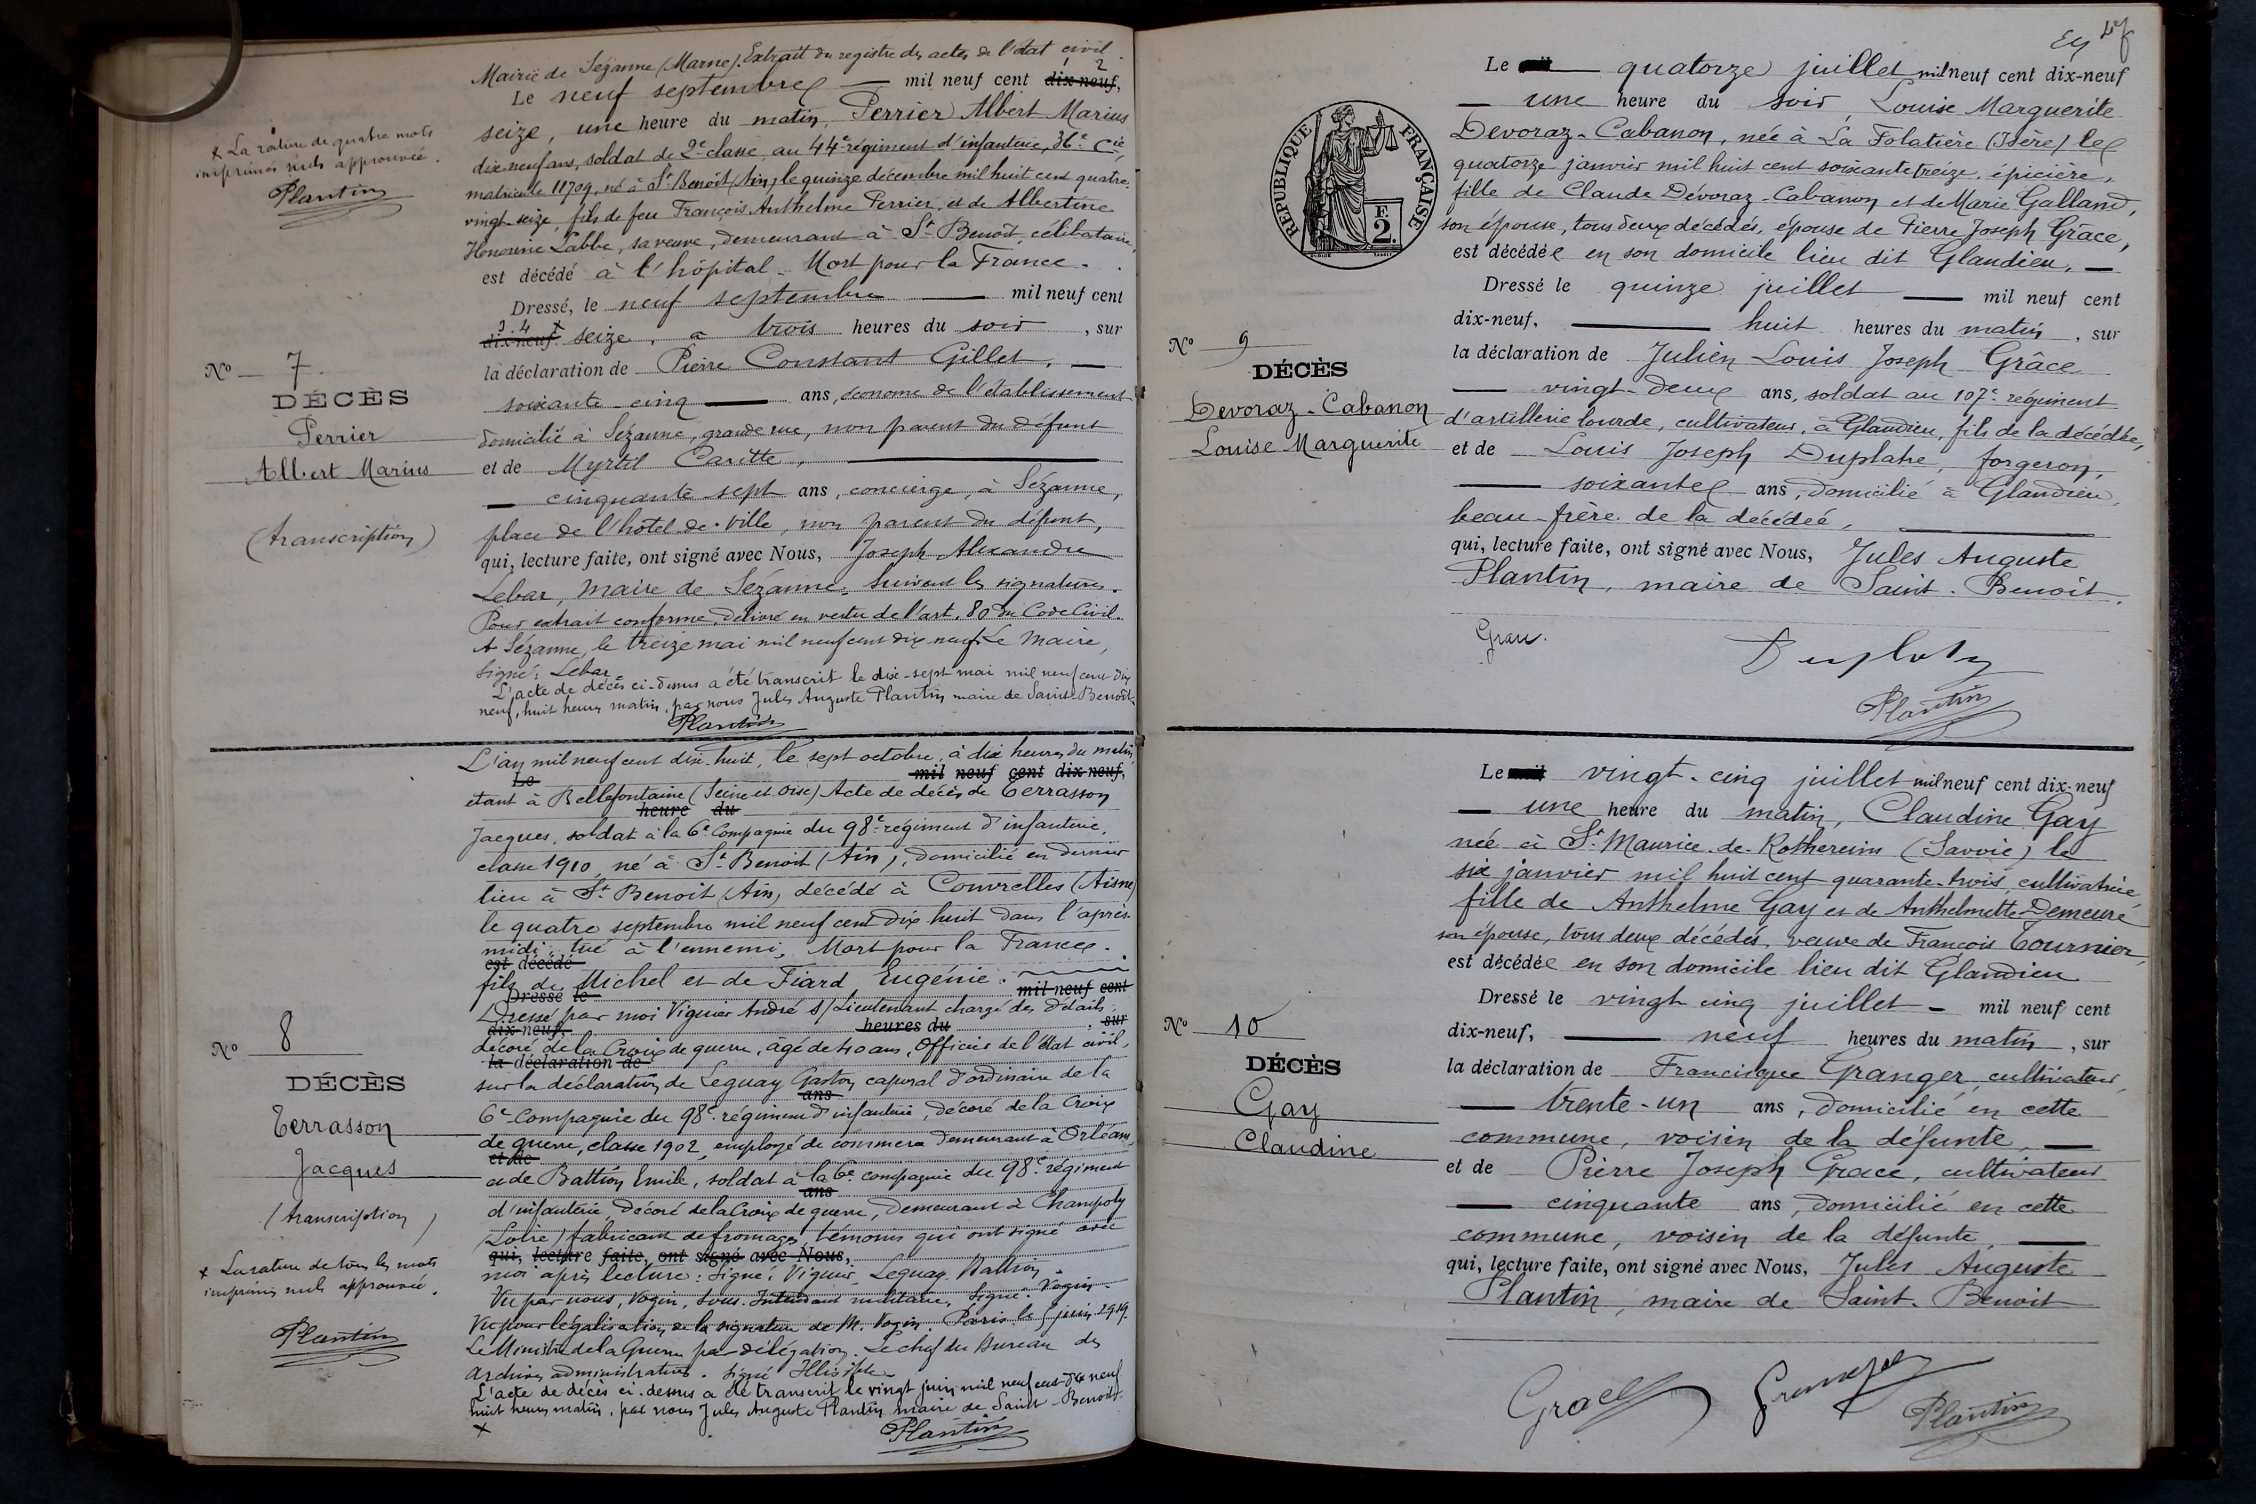 Mairie de Sézanne (Marne). Extrait du registre des actes de l'état civil.
1 2
Le neuf septembre — mil neuf cent dix-neuf,
seize, une heure du matin, Perrier Albert Marius
dix-neuf ans, soldat de 2e classe au 44e régiment d'infanterie, 36e Cie,
matricule 11709, né à St Benoit (Ain) le quinze décembre mil huit cent quatre-
vingt-seize, fils de feu François Anthelme Perrier et de Albertine
Honorine Labbe, sa veuve, demeurant à St Benoit, célibataire,
est décédé à l'hôpital - Mort pour la France.
Dressé, le neuf septembre — mil neuf cent
3 4
dix-neuf seize, à trois heures du soir, sur
la déclaration de Pierre Constant Gillet, —
soixante cinq — ans, économe de l'établissement
domicilié à Sézanne, grande rue, non parent du défunt
et de Myrtil Caritte, —
— cinquante sept ans, concierge, à Sézanne,
place de l'hôtel de Ville, non parent du défunt,
qui, lecture faite, ont signé avec Nous, Joseph Alexandre
Lebar, Maire de Sézanne. Suivent les signatures.
Pour extrait conforme, délivré en vertu de l'art. 80 du Code Civil.
A Sézanne, le treize mai mil neuf cent dix neuf. Le Maire,
Signé: Lebar
L'acte de décès ci-dessus a été transcrit le dix-sept mai mil neuf cent dix
neuf, huit heures matin, par nous Jules Auguste Plantin maire de Saint-Benoit.
Plantin
x La rature de quatre mots
imprimés nuls approuvée.
Plantin
No 7.
DÉCÈS
Perrier
Albert Marius
(transcription)
L'an mil neuf cent dix-huit, le sept octobre, à dix heures du matin
Le mil neuf cent dix-neuf,
étant à Bellefontaine (Seine et Oise) Acte de décès de Terrasson
heure du
Jacques, soldat à la 6e Compagnie du 98e régiment d'infanterie,
classe 1910, né à St Benoit (Ain), domicilié en dernier
lieu à St Benoit (Ain) décédé à Couvrelles (Aisne)
le quatre septembre mil neuf cent dix huit dans l'après-
midi, tué à l'ennemi, Mort pour la France.
est décédé
fils de Michel et de Fiard Eugénie.
Dressé le mil neuf cent
Dressé par moi Viguier André S/Lieutenant chargé des détails,
dix-neuf, heures du , sur
décoré de la Croix de guerre, âgé de 40 ans, Officier de l'état civil,
la déclaration de
sur la déclaration de Leguay Gaston caporal d'ordinaire de la
ans
6e Compagnie du 98e régiment d'infanterie, décoré de la Croix
de guerre, classe 1902, employé de commerce demeurant à Orléans,
et de
et de Battion Emile, soldat à la 6e compagnie du 98e régiment
ans
d'infanterie, décoré de la Croix de guerre, demeurant à Champoly
(Loire) fabricant de fromages, témoins qui ont signé avec
qui, lecture faite, ont signé avec Nous,
moi après lecture: Signé: Viguier, Leguay, Battion.
Vu par nous, Vogin, Sous-Intendant militaire, Signé: Vogin.
Vu pour légalisation de la signature de M. Vogin. Paris le 5 juin 1919.
Le Ministre de la Guerre par délégation. Le chef du Bureau des
Archives administratives. Signé
L'acte de décès ci-dessus a été transcrit le vingt juin mil neuf cent dix neuf
huit heures matin, par nous Jules Auguste Plantin maire de Saint-Benoit.
x
Plantin
No 8
DÉCÈS
Terrasson
Jacques
(transcription)
x La rature de tous les mots
imprimés nuls approuvée.
Plantin
RÉPUBLIQUE FRANÇAISE
2 F.
Le mil — quatorze juillet mil neuf cent dix-neuf
— une heure du soir, Louise Marguerite
Devoraz-Cabanon, née à La Folatière (Isère) le
quatorze janvier mil huit cent soixante treize, épicière,
fille de Claude Dévoraz-Cabanon et de Marie Galland,
son épouse, tous deux décédés, épouse de Pierre Joseph Grâce,
est décédée en son domicile lieu dit Glandieu. —
Dressé le quinze juillet — mil neuf cent
dix-neuf, — huit heures du matin, sur
la déclaration de Julien Louis Joseph Grâce
— vingt-deux ans, soldat au 107e régiment
d'artillerie lourde, cultivateur, à Glandieu, fils de la décédée,
et de Louis Joseph Duplatre, forgeron,
— soixante ans, domicilié à Glandieu,
beau-frère de la décédée, —
qui, lecture faite, ont signé avec Nous, Jules Auguste
Plantin, maire de Saint-Benoit.
Plantin
No 9
DÉCÈS
Devoraz-Cabanon
Louise Marguerite
Le mil vingt-cinq juillet mil neuf cent dix-neuf
— une heure du matin, Claudine Gay
née à St Maurice-de-Rotherens (Savoie) le
six janvier mil huit cent quarante-trois, cultivatrice
fille de Anthelme Gay et de Anthelmette Demeure
son épouse, tous deux décédés, veuve de François Tournier,
est décédée en son domicile lieu dit Glandieu
Dressé le vingt cinq juillet — mil neuf cent
dix-neuf, — neuf heures du matin, sur
la déclaration de Francisque Granger, cultivateur,
— trente-un ans, domicilié en cette
commune, voisin de la défunte, —
et de Pierre Joseph Grace, cultivateur
— cinquante ans, domicilié en cette
commune, voisin de la défunte, —
qui, lecture faite, ont signé avec Nous, Jules Auguste
Plantin, maire de Saint-Benoit
Grace Plantin
No 10
DÉCÈS
Gay
Claudine